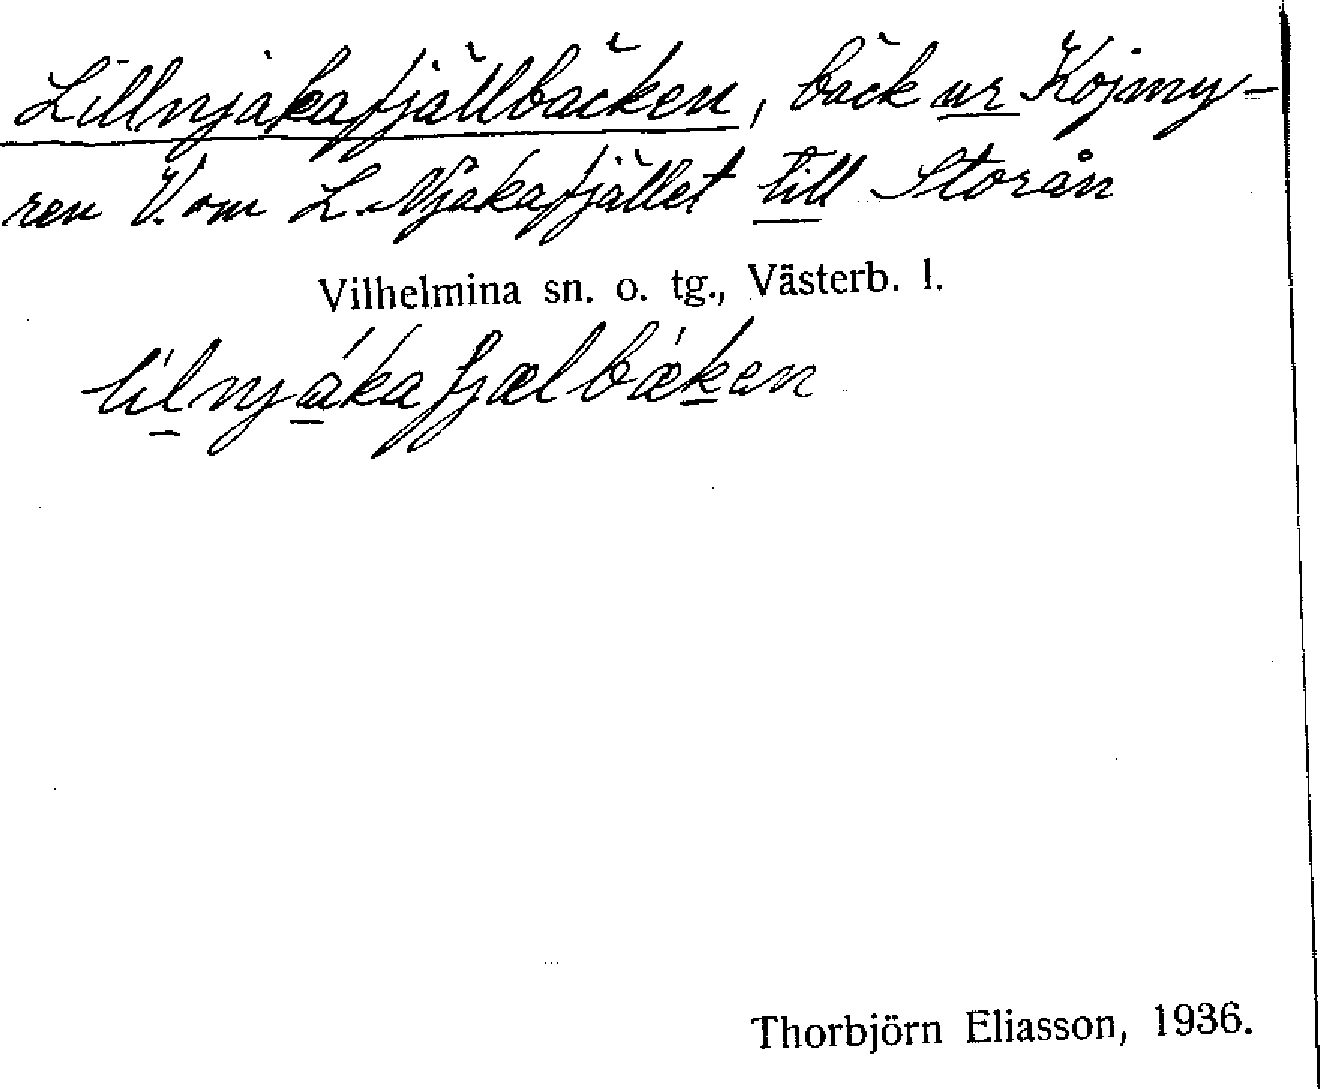 Lillnjakafjällbäcken, bäck ur Kojmy-
ren V. om L. Njakafjället till Storån
Vilhelmina sn. o. tg., Västerb. l.
lilnjákafjælbæken
Thorbjörn Eliasson, 1936.